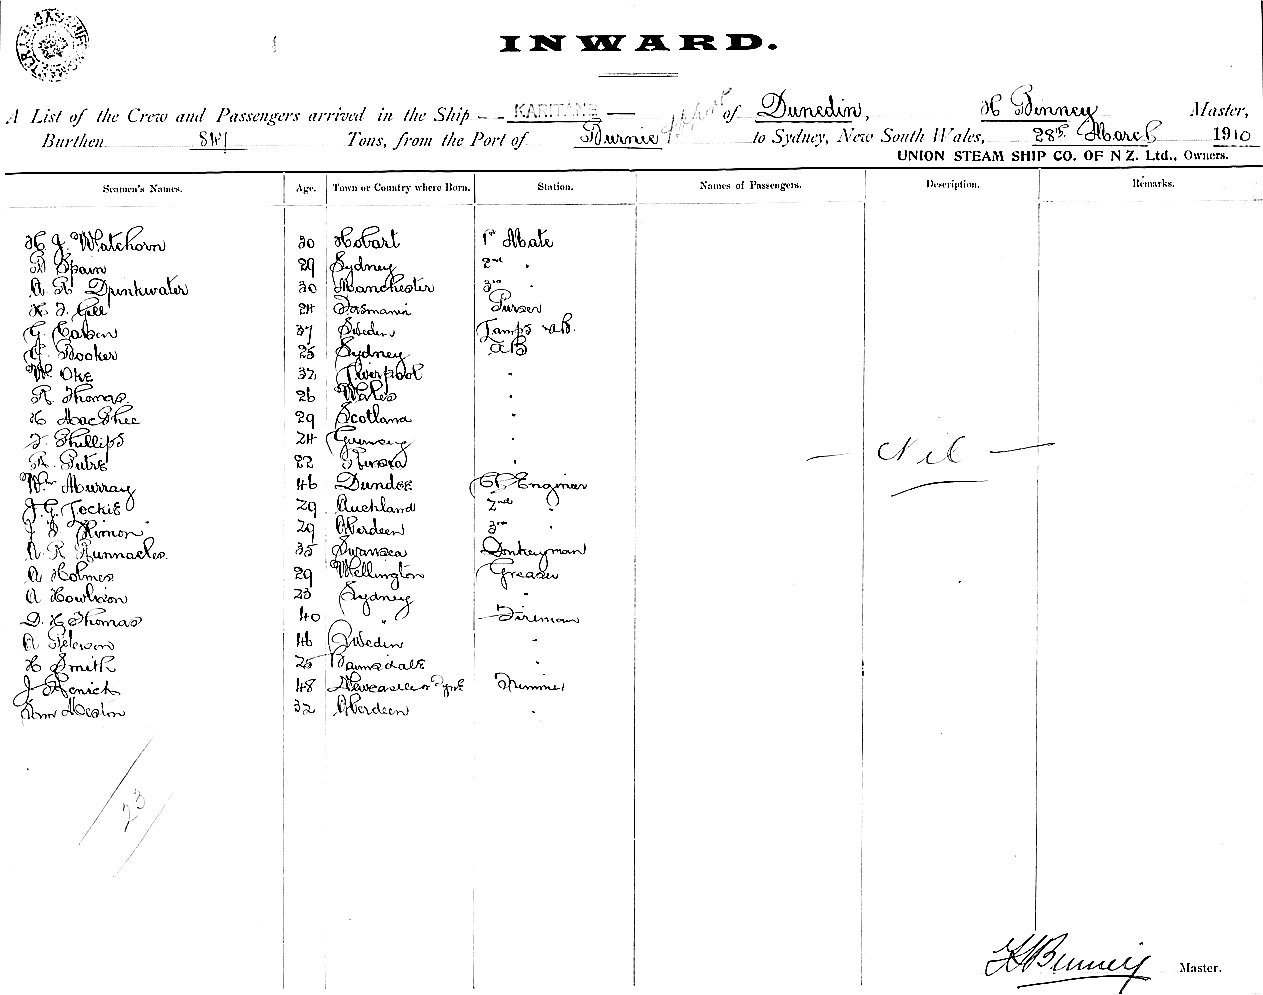 INWARD.
A List of the Crew and Passengers arrived in the Ship - - KARITANE — of Dunedin, H Binney Master,
Burthen 841 Tons, from the Port of Burnie to Sydney, New South Wales, 28th March 1910
UNION STEAM SHIP CO. OF N Z. Ltd., Owners.
Seamen's Names. Age. Town or Country where Born. Station. Names of Passengers. Description. Remarks.
H J Watchorn 30 Hobart 1st Mate
Spain 29 Sydney 2nd "
A R Drinkwater 30 Manchester 3rd "
H F Gee 24 Tasmania Purser
G. 37 Sweden Lamps AB.
Booker 25 Sydney AB
W. Oke 32 Liverpool "
R. Thomas 26 Wales "
H MacPhee 29 Scotland "
J. Phillips 24 Guernsey "
R. 22 Russia "
— Nil —
Wm Murray 46 Dundee 1st Engineer
J. G. Jockie 29 Auckland 2nd "
J 29 Aberdeen 3rd "
A R Runnacles. 35 Swansea Donkeyman
A Holmes 29 Wellington Greaser
A Howlison 23 Sydney "
D. H Thomas 40 " Fireman
A 46 Sweden "
H Smith 25 Bairnsdale "
J Kenick 48 Newcastle on Tyne Trimmer
Meston 32 Aberdeen "
23
H Binney Master.